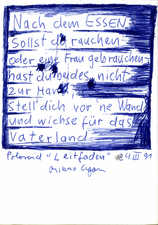 Nach dem ESSEN
Sollst du rauchen
oder eine Frau gebrauchen
hast du beides nicht
zur Hand,
stell dich vor 'ne Wand
und wichse für das
Vaterland
Polaroid "Leitfaden" 4 III 91